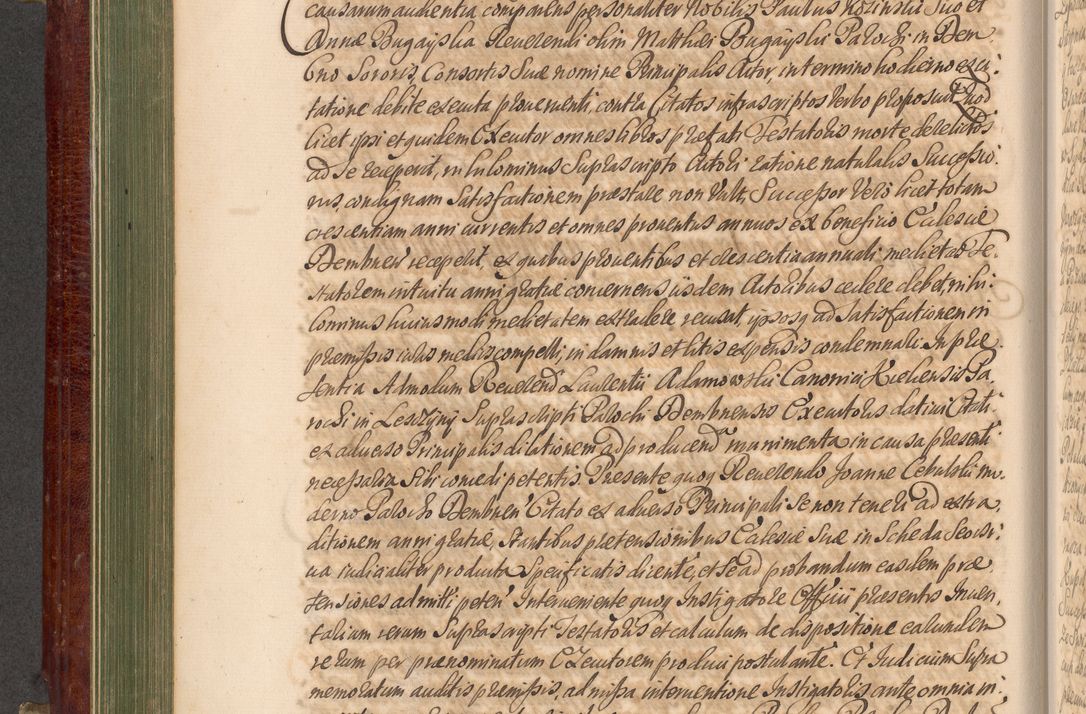 causarum audientia comparens personaliter Nobilis Paulus Rozinski Suo et
Annæ Bugayska Reverendi olim Matthæi Bugayski Parochi in Dem
bno Sororis, Consortis Suæ nomine Principalis Actor, in termino hodierno ex ci:
tatione debite executa provenienti, contra Citatos infrascriptos Verbo proposuit Quod
licet ipsi et quidem Executor omnes libros præfati Testatoris morte derelictos
ad se receperit, nihilominus Suprascripto Actori ratione naturalis Successio:
nis, condignam Satisfactionem præstare non Vult, Successor Vero licet totam
crescentiam anni currentis et omnes proventus annuos ex beneficio Ecclesiæ
Dembnen' recepelit, ex quibus proventibus et crescentia annuali medietas Te:
statorem intuitu anni gratiæ concernens iisdem Actoribus cedere debet, nihi:
lominus huiusmodi medietatem extradere recusat, ipsosq ad Satisfactionem in
præmissis iuris mediis compelli, in damnis et litis expensis condemnari. In præ:
sentia Admodum Reverend Laurentii Adamowski Canonici Kielcensis Pa:
rochi in Leszzyny Suprascripti Parochi Dembnensis Executoris dativi Citati
ex adverso Principalis dilationem ad producend munimenta in causa præsenti
necessaria Sibi concedi petentis. Præsente quoq Reverendo Joanne Cebulski mo:
derno Parocho Dembnen' Citato ex adverso Principali Se non teneri ad extra
ditionem anni gratiæ, Stantibus prætensionibus Ecclesiæ Suæ in Scheda Seorsi:
va iudicialiter producta Specificatis dicente, et Se ad probandum easdem præ
tensiones admitti peten' Interveniente quoq Instigatore Officii præsentis Inven,
tarium rerum Suprascripti Testatoris et calculum de dispositione earundem
rerum per prænominatum Executorem produci postulante. Et Judicium Supra
memoratum auditis præmissis, admissa interventione Instigatoris ante omnia in: